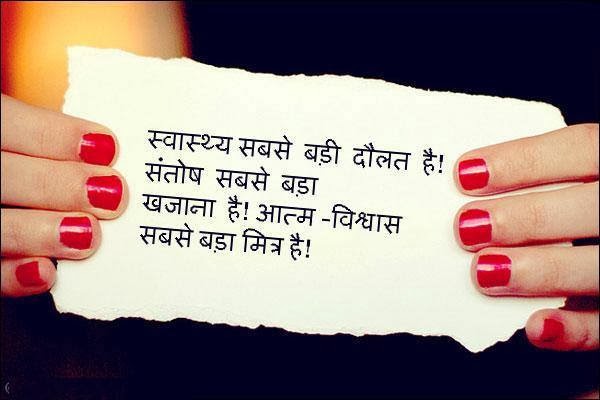 स्वास्थ्य सबसे बड़ी दौलत है!
संतोष सबसे बड़ा
खजाना है! आत्म -विश्वास
सबसे बड़ा मित्र है!